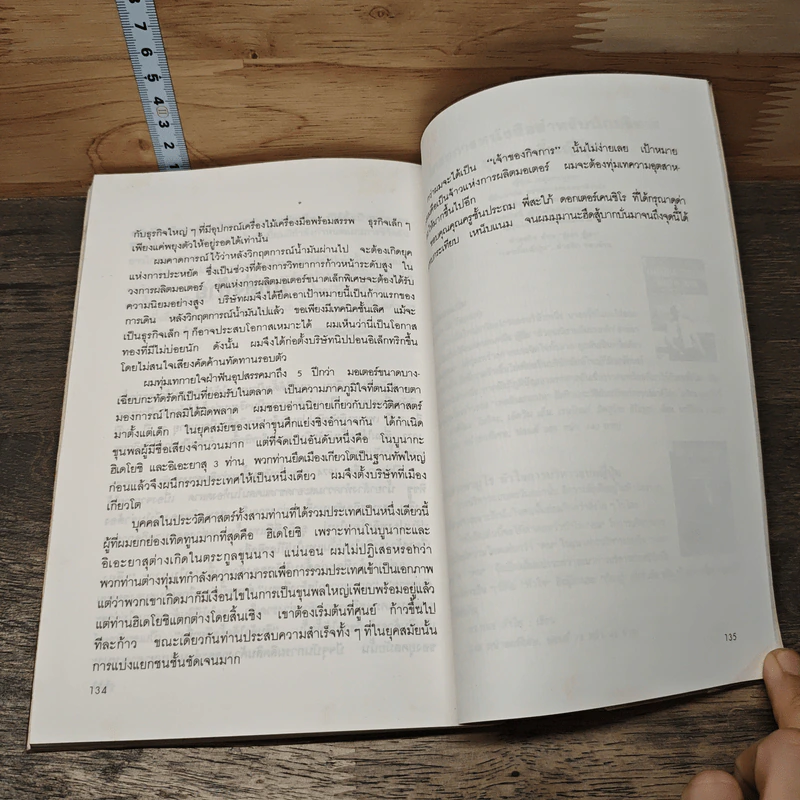 8
7
6
5
4
3
2
1
กับธุรกิจใหญ่ ๆ ที่มีอุปกรณ์เครื่องไม้เครื่องมือพร้อมสรรพ ธุรกิจเล็ก ๆ
เพียงแค่พยุงตัวให้อยู่รอดได้เท่านั้น
ผมคาดการณ์ไว้ว่าหลังวิกฤตการณ์น้ำมันผ่านไป จะต้องเกิดยุค
แห่งการประหยัด ซึ่งเป็นช่วงที่ต้องการวิทยาการก้าวหน้าระดับสูง ใน
วงการผลิตมอเตอร์ ยุคแห่งการผลิตมอเตอร์ขนาดเล็กพิเศษจะต้องได้รับ
ความนิยมอย่างสูง บริษัทผมจึงได้ยึดเอาเป้าหมายนี้เป็นก้าวแรกของ
การเดิน หลังวิกฤตการณ์น้ำมันไปแล้ว ขอเพียงมีเทคนิคชั้นเลิศ แม้จะ
เป็นธุรกิจเล็ก ๆ ก็อาจประสบโอกาสเหมาะได้ ผมเห็นว่านี่เป็นโอกาส
ทองที่มีไม่บ่อยนัก ดังนั้น ผมจึงได้ก่อตั้งบริษัทนิปปอนอิเล็กทริกขึ้น
โดยไม่สนใจเสียงคัดค้านทัดทานรอบตัว
ผมทุ่มเทกายใจฝ่าฟันอุปสรรคมาถึง 5 ปีกว่า มอเตอร์ขนาดบาง-
เฉียบกะทัดรัดก็เป็นที่ยอมรับในตลาด เป็นความภาคภูมิใจที่ตนมีสายตา
มองการณ์ไกลมิได้ผิดพลาด ผมชอบอ่านนิยายเกี่ยวกับประวัติศาสตร์
มาตั้งแต่เด็ก ในยุคสมัยของเหล่าขุนศึกแย่งชิงอำนาจกัน ได้กำเนิด
ขุนพลผู้มีชื่อเสียงจำนวนมาก แต่ที่จัดเป็นอันดับหนึ่งคือ โนบูนากะ
ฮิเดโยชิ และอิเอะยาสุ 3 ท่าน พวกท่านยึดเมืองเกียวโตเป็นฐานทัพใหญ่
ก่อนแล้วจึงผนึกรวมประเทศให้เป็นหนึ่งเดียว ผมจึงตั้งบริษัทที่เมือง
เกียวโต
บุคคลในประวัติศาสตร์ทั้งสามท่านที่ได้รวมประเทศเป็นหนึ่งเดียวนี้
ผู้ที่ผมยกย่องเทิดทูนมากที่สุดคือ ฮิเดโยชิ เพราะท่านโนบูนากะและ
อิเอะยาสุต่างเกิดในตระกูลขุนนาง แน่นอน ผมไม่ปฏิเสธหรอกว่า
พวกท่านต่างทุ่มเทกำลังความสามารถเพื่อการรวมประเทศเข้าเป็นเอกภาพ
แต่ว่าพวกเขาเกิดมาก็มีเงื่อนไขในการเป็นขุนพลใหญ่เพียบพร้อมอยู่แล้ว
แต่ท่านฮิเดโยชิแตกต่างโดยสิ้นเชิง เขาต้องเริ่มต้นที่ศูนย์ ก้าวขึ้นไป
ทีละก้าว ขณะเดียวกันท่านประสบความสำเร็จทั้ง ๆ ที่ในยุคสมัยนั้น
การแบ่งแยกชนชั้นชัดเจนมาก
134
ผมจะได้เป็น “เจ้าของกิจการ” นั้นไม่ง่ายเลย เป้าหมาย
เป็นจ้าวแห่งการผลิตมอเตอร์ ผมจะต้องทุ่มเทความอุตสาห-
มากขึ้นไปอีก
คุณครูชั้นประถม พี่สะใภ้ ดอกเตอร์เคนชิโร ที่ได้กรุณาดุด่า
กระเทียบ เหน็บแนม จนผมมุมานะฮึดสู้บากบั่นมาจนถึงจุดนี้ได้
135